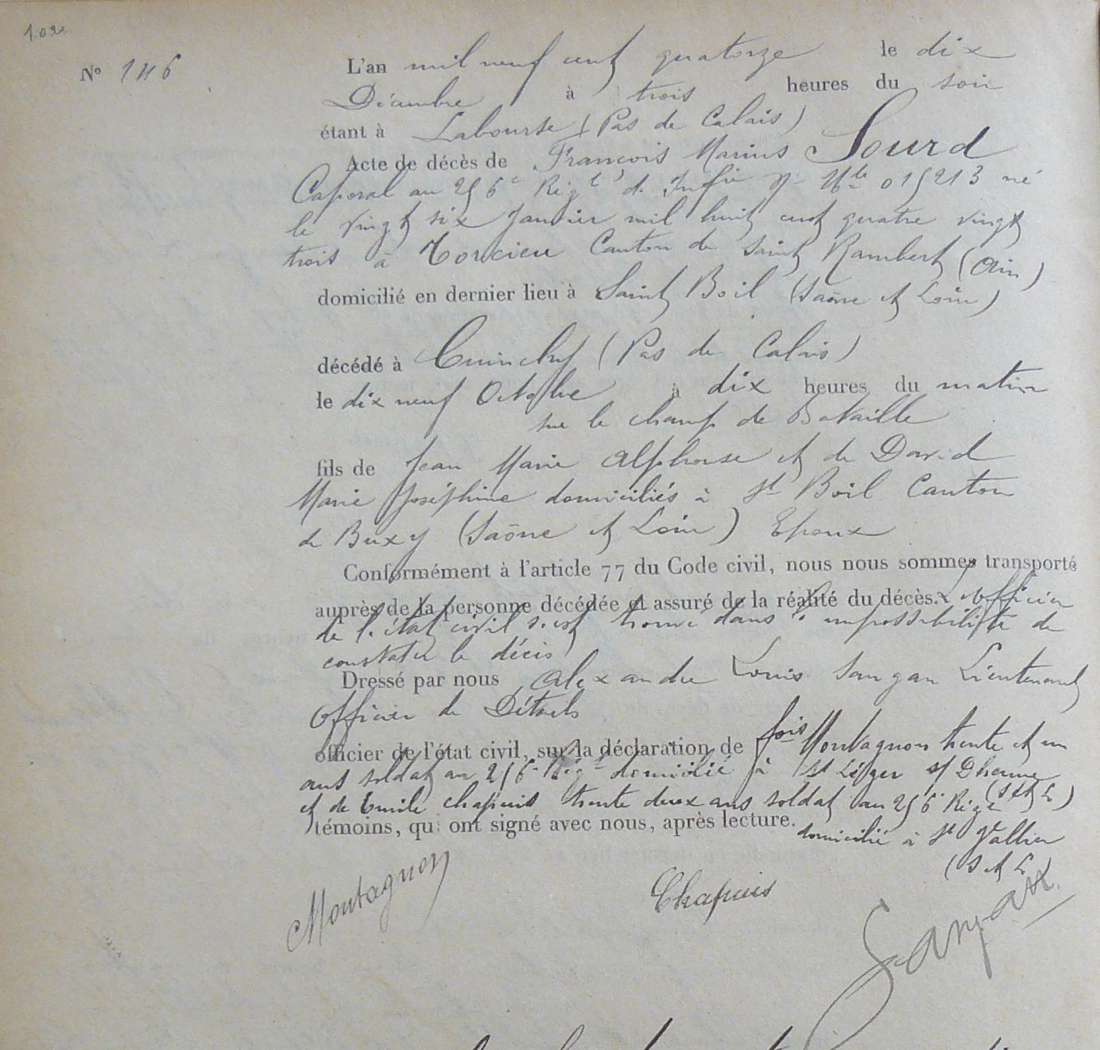 102
N° 146
L'an mil neuf cent quatorze le dix
Décembre à trois heures du soir
étant à Labourse (Pas de Calais)
Acte de décès de François Marius Sourd
Caporal au 256e Régt d'Infie Nº Mle 015213 né
le vingt six Janvier mil huit cent quatre vingt
trois à Torcieu Canton de Saint Rambert (Ain)
domicilié en dernier lieu à Saint Boil (Saône et Loire)
décédé à Cuinchy (Pas de Calais)
le dix neuf Octobre à dix heures du matin
sur le champ de Bataille
fils de Jean Marie Alphonse et de David
Marie Joséphine domiciliés à St Boil Canton
de Buxy (Saône et Loire) Epoux
Conformément à l'article 77 du Code civil, nous nous sommes transporté
auprès de la personne décédée et assuré de la réalité du décès. L'officier
de l'état civil s'est trouvé dans l'impossibilité de
constater le décès
Dressé par nous Alexandre Louis Sangan Lieutenant
Officier de Détails
officier de l'état civil, sur la déclaration de fois Montagnon trente et un
ans soldat au 256e Régt domicilié à St Léger s/ Dheune
(S et L)
et de Emile Chapuis trente deux ans soldat au 256e Régt
témoins, qui ont signé avec nous, après lecture. domicilié à St Vallier
(S et L)
Montagnon Chapuis Sangan